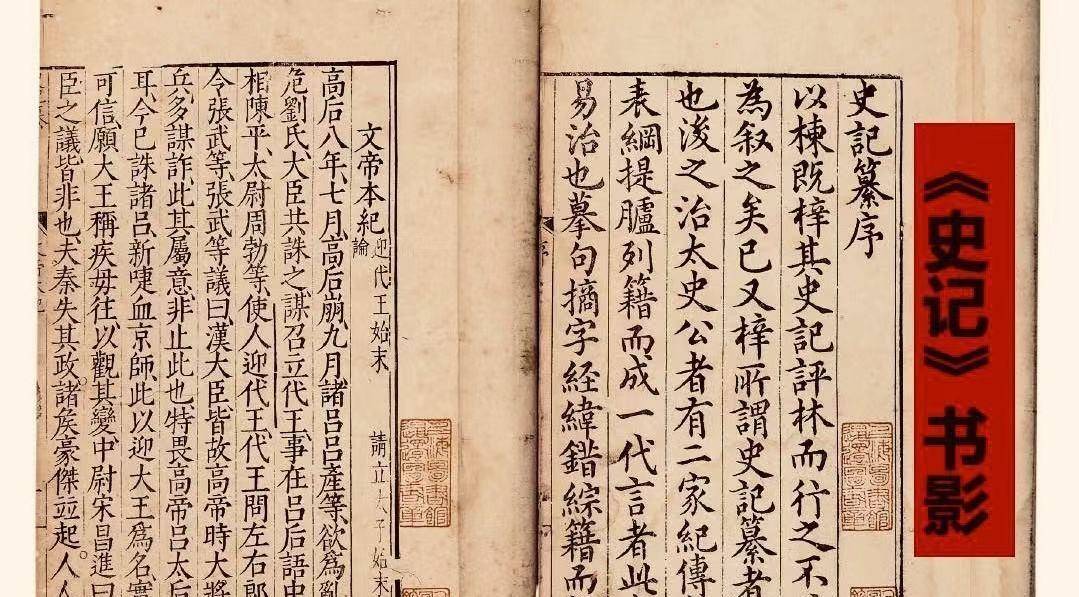 《史记》书影
史記纂序
以棟既梓其史記評林而行之不
為叙之矣已又梓所謂史記纂者
也浚之治太史公者有二家紀傳
表綱提臚列籍而成一代言者此
易治也摹句摘字经緯錯綜籍而
文帝本紀
迎代王始末 請立太子始末
論
高后八年、七月、高后崩、九月諸呂呂產等、欲為亂
危劉氏、大臣共誅之、謀召立代王、事在呂后語中
相陳平、太尉周勃等、使人迎代王、代王問左右郎
令張武等、張武等議曰、漢大臣皆故高帝時大將
兵、多謀詐、此其屬意、非止此也、特畏高帝呂太后
耳、今已誅諸呂、新啑血京師、此以迎大王為名、實
可信、願大王稱疾毋往、以觀其變、中尉宋昌進曰
臣之議皆非也、夫秦失其政、諸矦豪傑竝起、人人